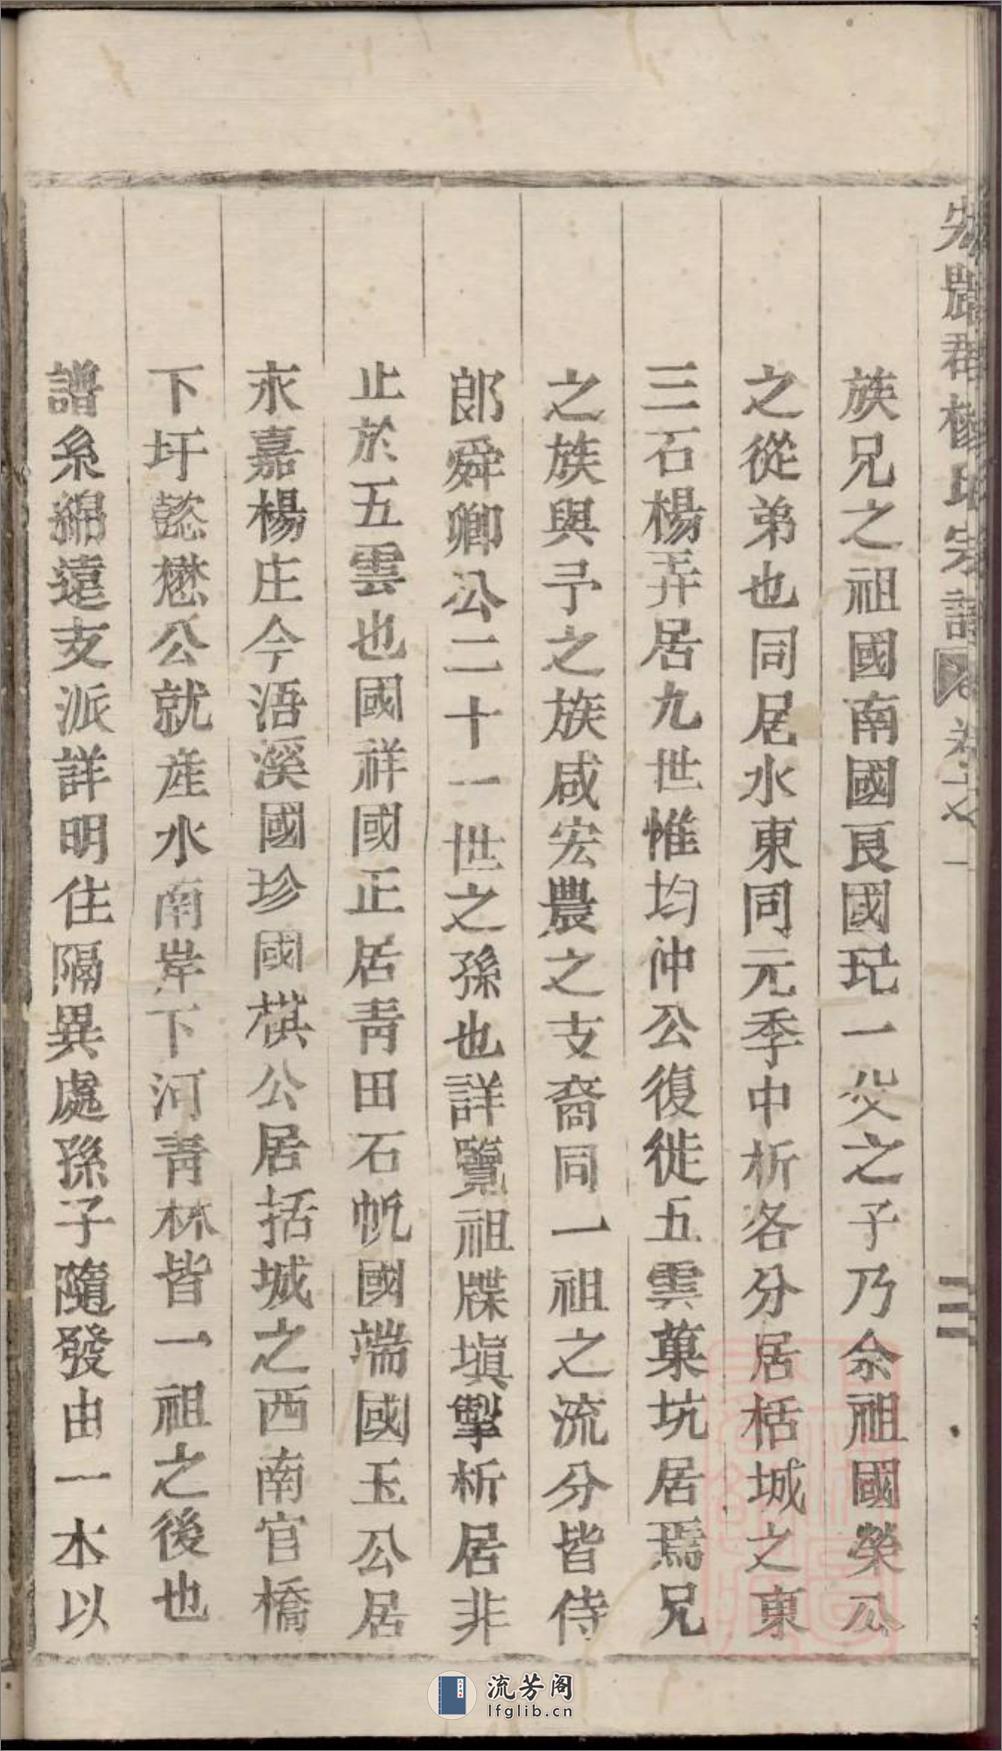 族兄之祖國南國良國玘一父之子乃余祖國榮公
之從弟也同居水東同元季中析各分居栝城之東
三石楊弄居九世惟均仲公復徙五雲菓坑居焉兄
之族與予之族咸宏農之支裔同一祖之流分皆侍
郎舜卿公二十一世之孫也詳覽祖牒塡擊析居非
止於五雲也國祥國正居靑田石帆國端國玉公居
永嘉楊庄今浯溪國珍國棋公居括城之西南官橋
下圩懿懋公就產水南岸下河靑林皆一祖之後也
譜系綿遠支派詳明住隔異處孫子隨發由一本以
農郡楊氏宗譜 卷之一
流芳阁
lfglib.cn